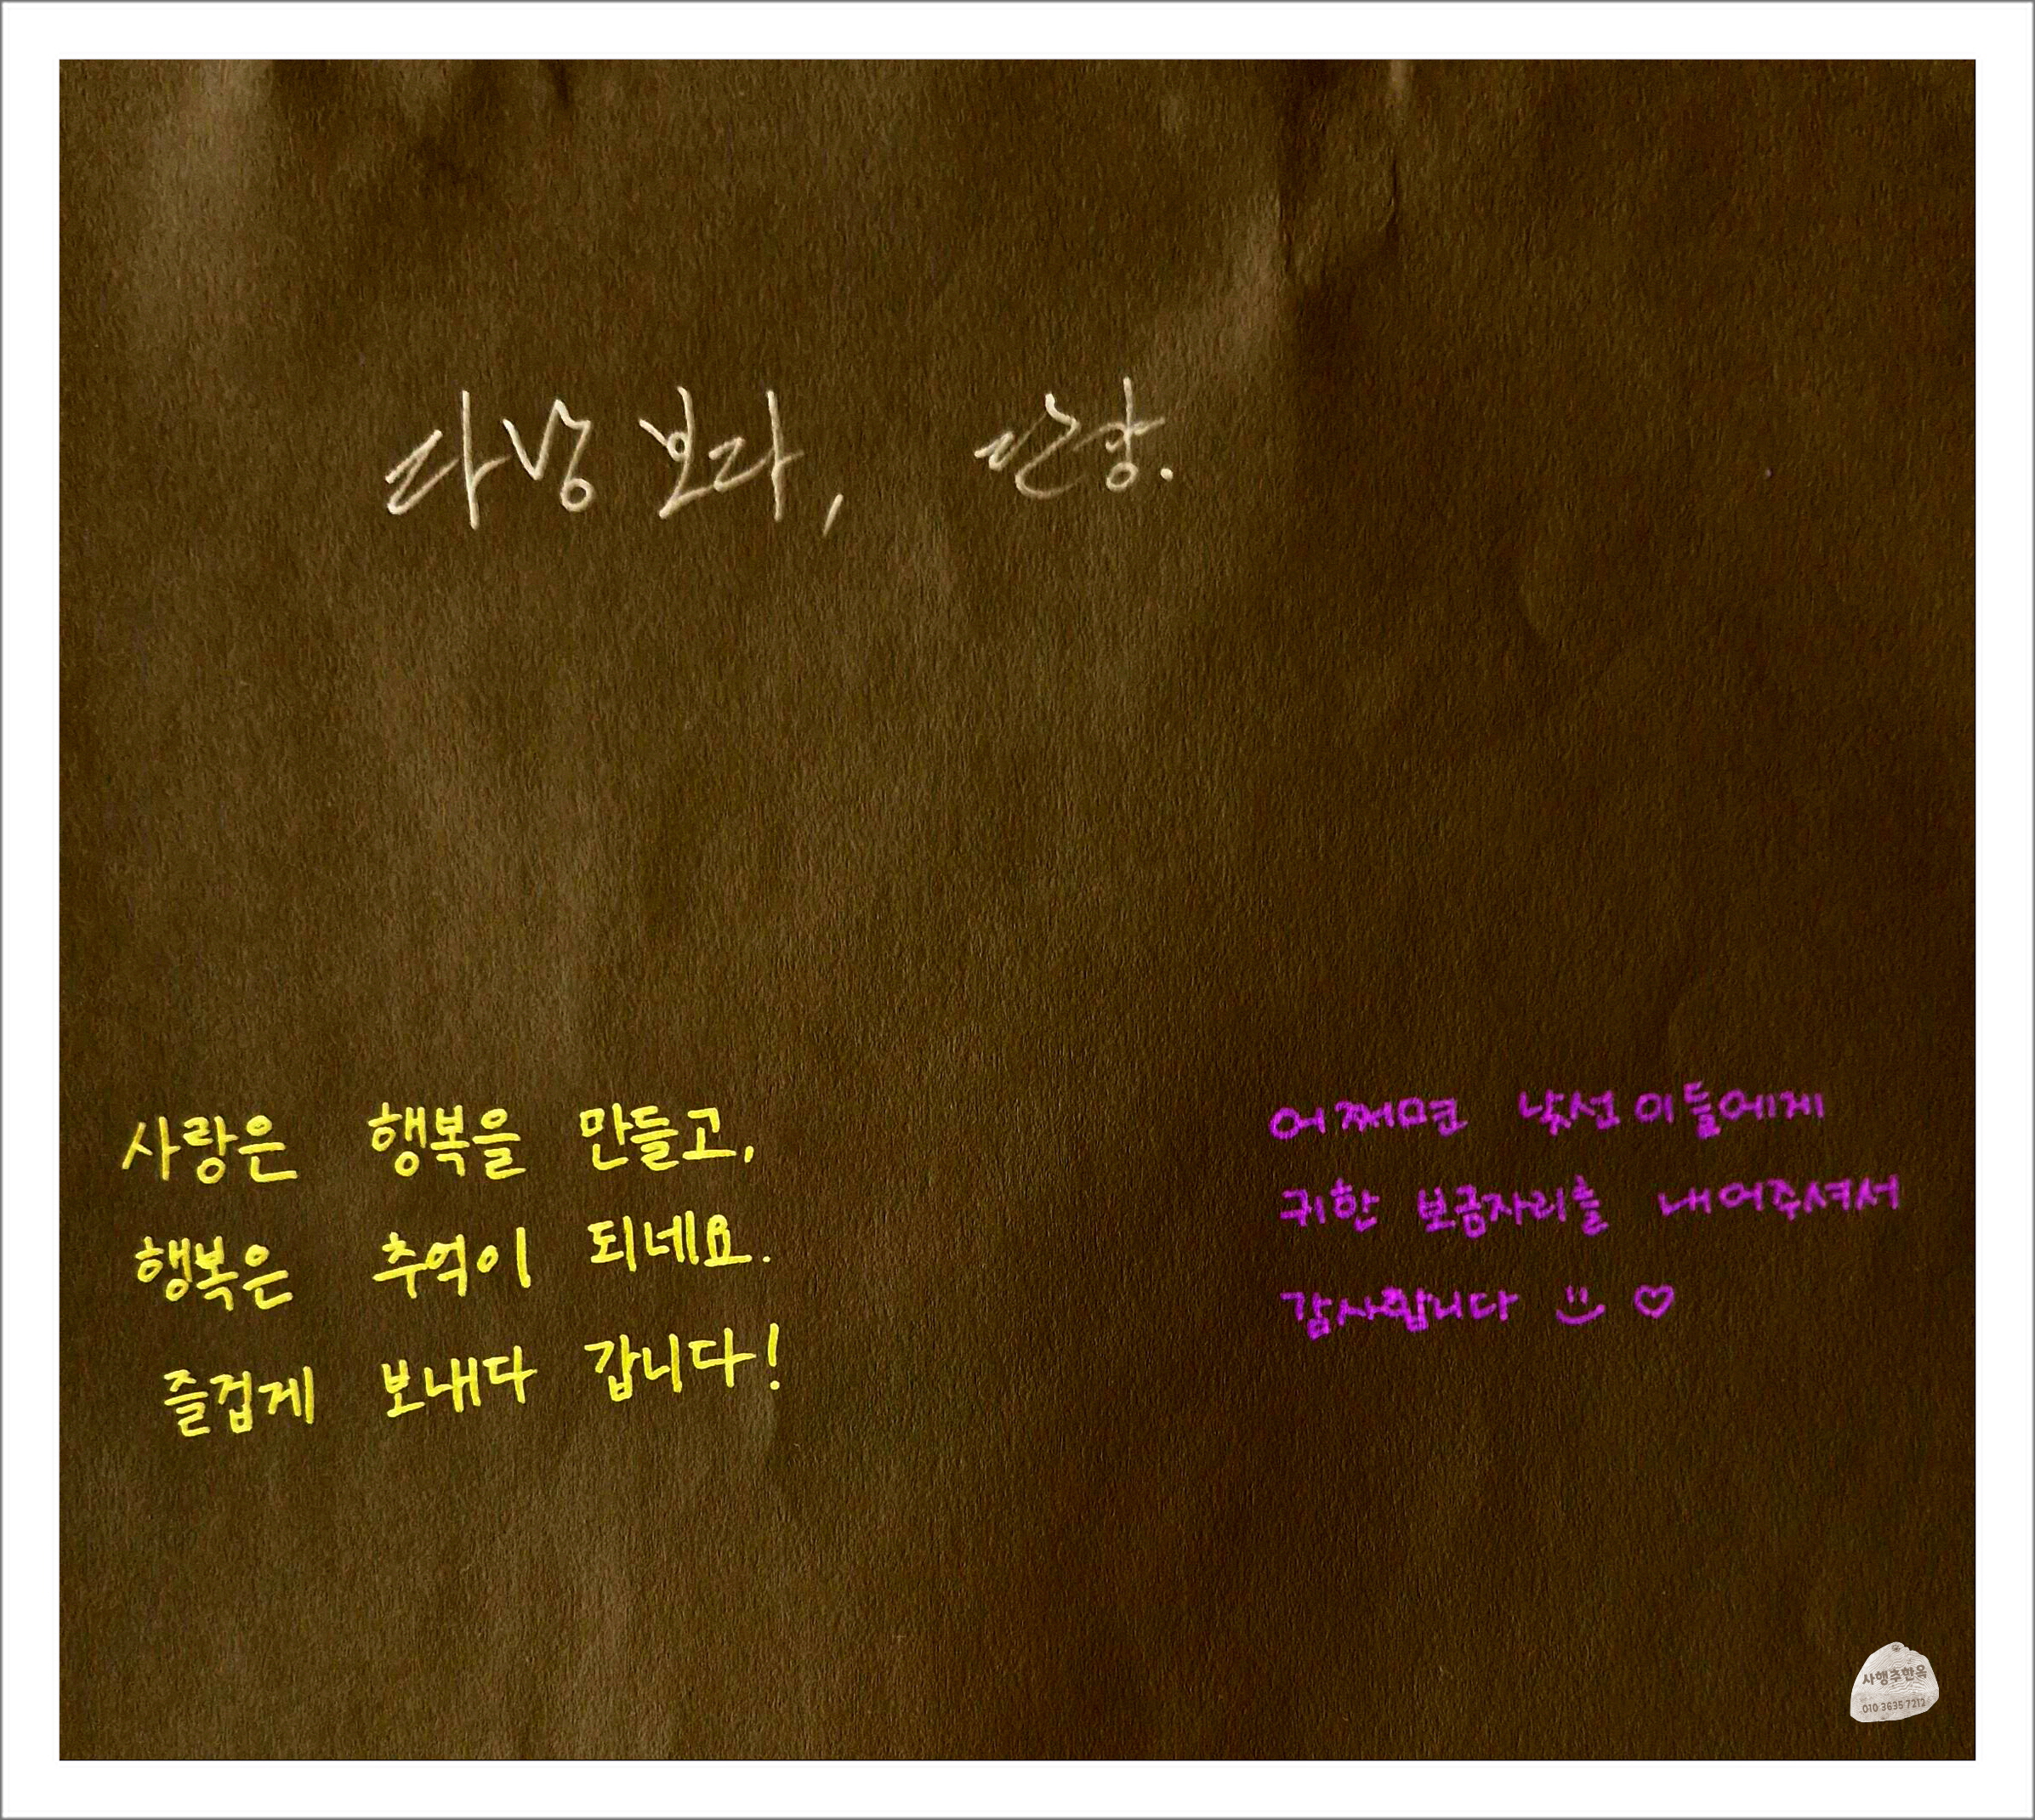 다낭보다, 단양.
사랑은 행복을 만들고,
행복은 추억이 되네요.
즐겁게 보내다 갑니다!
어쩌면 낯선 이들에게
귀한 보금자리를 내어주셔서
감사합니다 ♡
사행추한옥
010 3635 7212